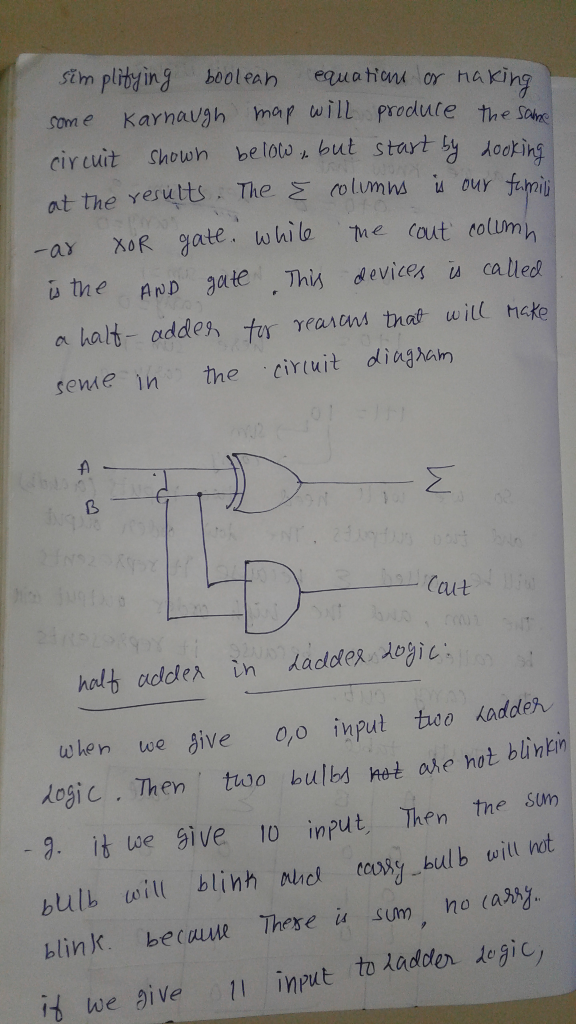 simplifying boolean equations or making
some Karnaugh map will produce the same
circuit shown below, but start by looking
at the results. The Σ columns is our famili
-ar XOR gate. while the cout column
is the AND gate. This devices is called
a half-adder for reasons that will make
sense in the circuit diagram
A
B
Σ
Cout
half adder in Ladder Logic:
when we give 0,0 input two Ladder
Logic. Then two bulbs not are not blinkin
-g. if we give 10 input, Then the sum
bulb will blink and carry bulb will not
blink. because There is sum, no carry..
if we give 11 input to Ladder Logic,